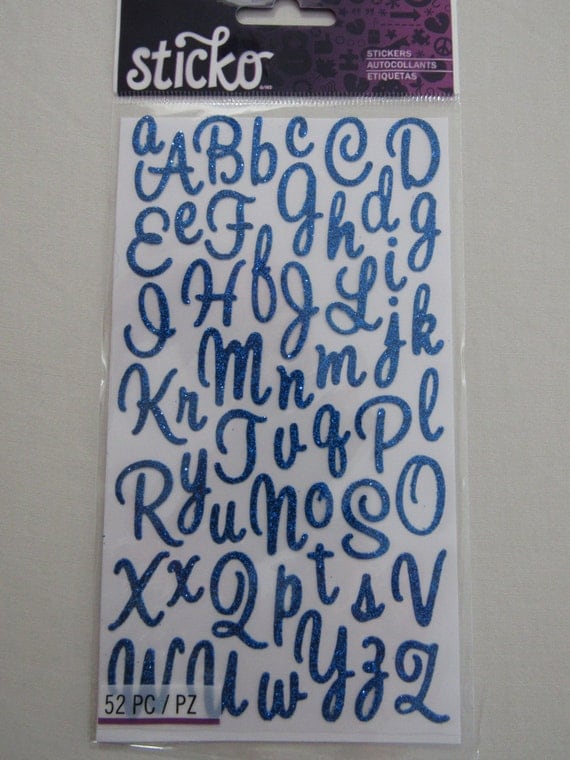 sticko
STICKERS
AUTOCOLLANTS
ETIQUETAS
a A B b c C D
E e F G h d g
I H f J L i
K r M n m j k
T v q P l
R y u N o S O
X x Q p t s V
W U w Y z Z
52 PC / PZ